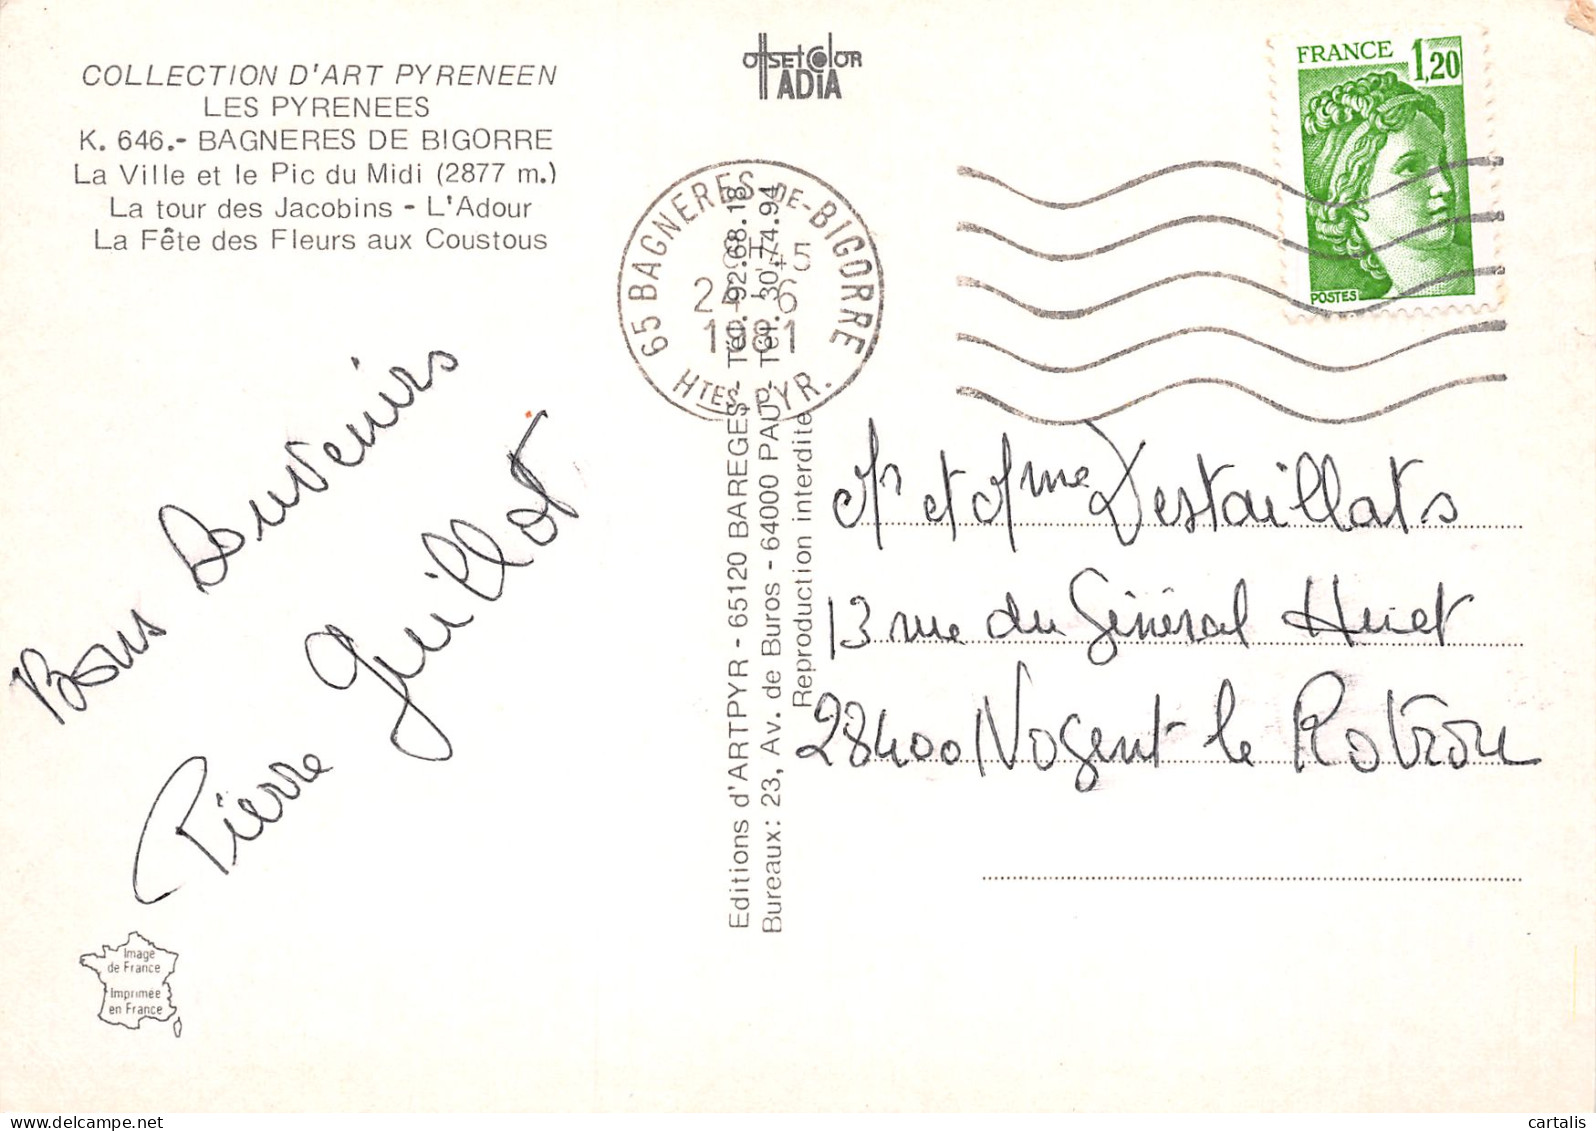 COLLECTION D'ART PYRENEEN
LES PYRENEES
K. 646.- BAGNERES DE BIGORRE
La Ville et le Pic du Midi (2877 m.)
La tour des Jacobins - L'Adour
La Fête des Fleurs aux Coustous
Bons Souvenirs
Pierre Guillot
Image
de France
Imprimée
en France
offsetcolor
ADIA
65 BAGNERES DE-BIGORRE
45
6
1981
HTES PYR.
Editions d'ARTPYR - 65120 BAREGES - Tél. 92.68.18
Bureaux: 23, Av. de Buros - 64000 PAU - Tél. 30.74.94
Reproduction interdite
FRANCE 1,20
POSTES
Mr et Mme Destaillats
13 rue du Général Huet
28400 Nogent le Rotrou
cartalis